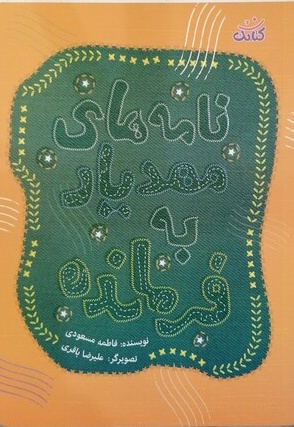 کتابک
نامه‌های
مهدیار
به
فرمانده
نویسنده: فاطمه مسعودی
تصویرگر: علیرضا باقری